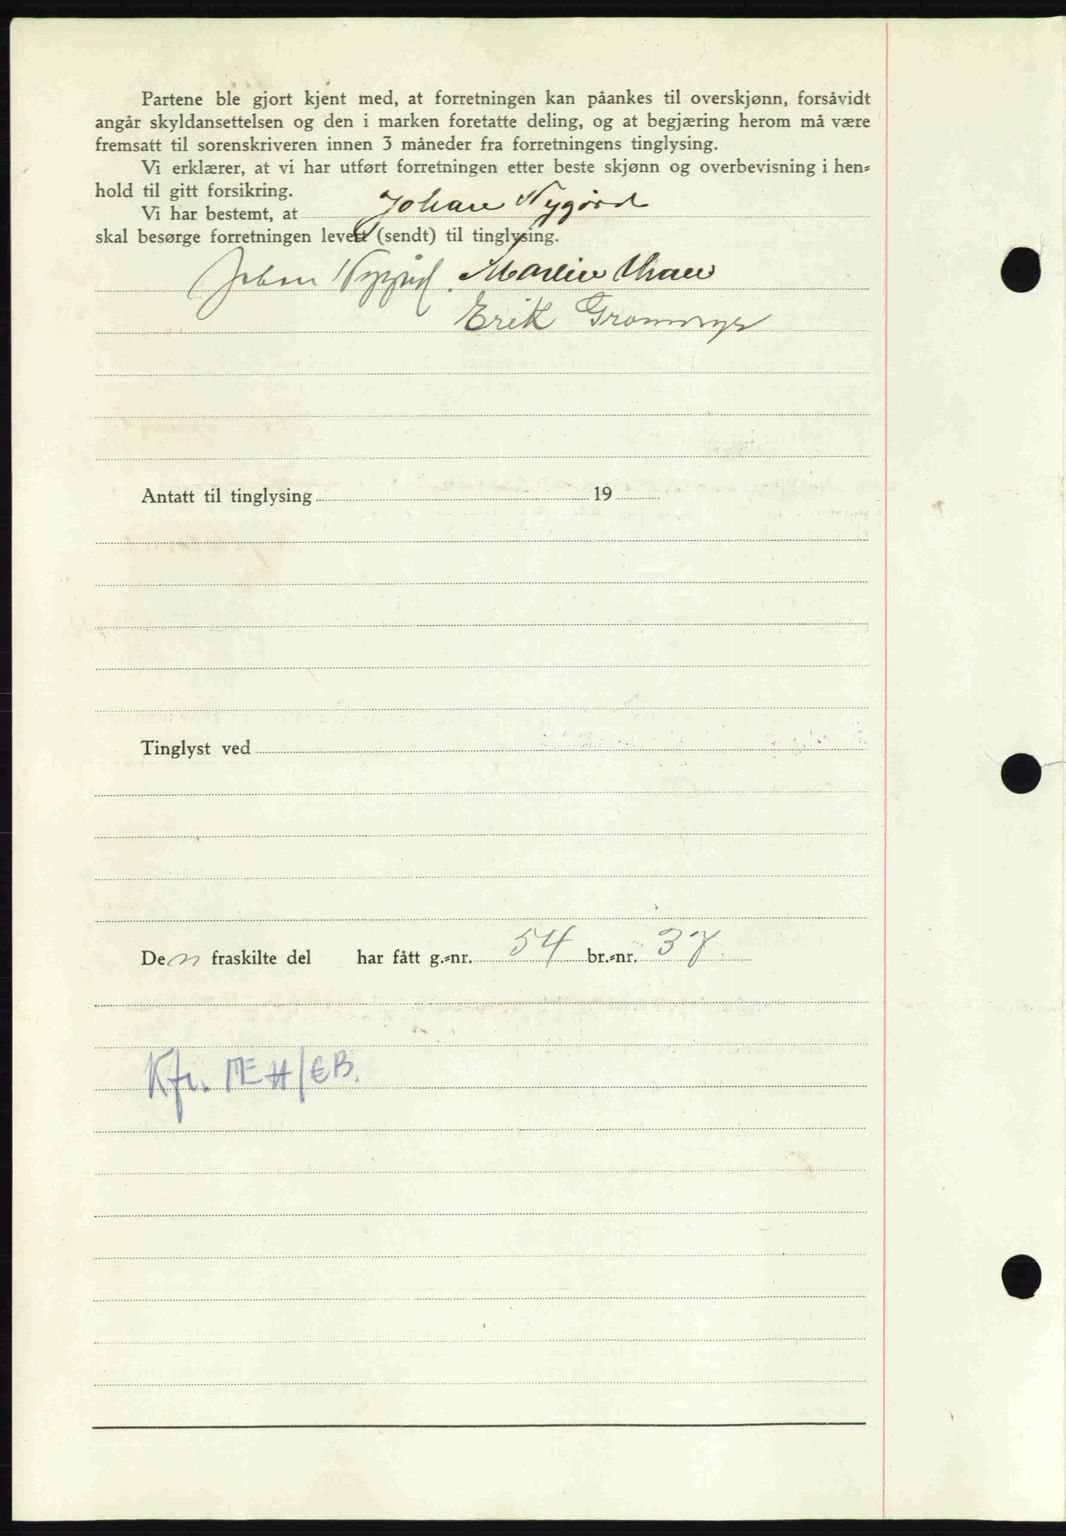 Partene ble gjort kjent med, at forretningen kan påankes til overskjønn, forsåvidt
angår skyldansettelsen og den i marken foretatte deling, og at begjæring herom må være
fremsatt til sorenskriveren innen 3 måneder fra forretningens tinglysing.
Vi erklærer, at vi har utført forretningen etter beste skjønn og overbevisning i hen-
hold til gitt forsikring.
Vi har bestemt, at Johan Nygård
skal besørge forretningen levert (sendt) til tinglysing.
Johan Nygård. Martin
Erik
Antatt til tinglysing 19
Tinglyst ved
Den fraskilte del har fått g.-nr. 54 br.-nr. 37.
Kfr. MEH/EB.